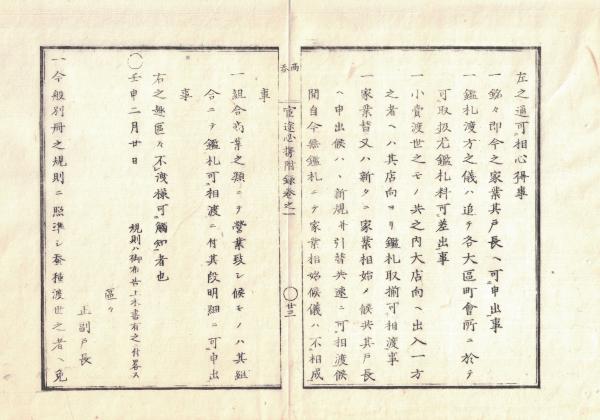 左之通可相心得事
一銘々即今之家業其戸長ヘ可申出事
一鑑札渡方之儀ハ追テ各大区町會所ニ於テ
可取扱尤鑑札料可差出事
一小賣渡世之モノ共之内大店向ヘ出入一方
之者ヘハ其店向ヨリ鑑札取揃可相渡事
一家業替又ハ新タニ家業相始メ候共其戸長
ヘ申出候ハヽ新規并引替共速ニ可相渡候
間自今無鑑札ニテ家業相始候儀ハ不相成
官途必携附録巻之一
廿三
事
一組合商業之類ニテ營業致シ候モノハ其組
合ニテ鑑札可相渡ニ付其段明細ニ可申出
事
右之趣區々不洩様可觸知者也
〇壬申二月廿日
規則ハ御布告上木書有之ニ付畧ス
區々
正副戸長
一今般別冊之規則ニ照準シ蚕種渡世之者ヘ免